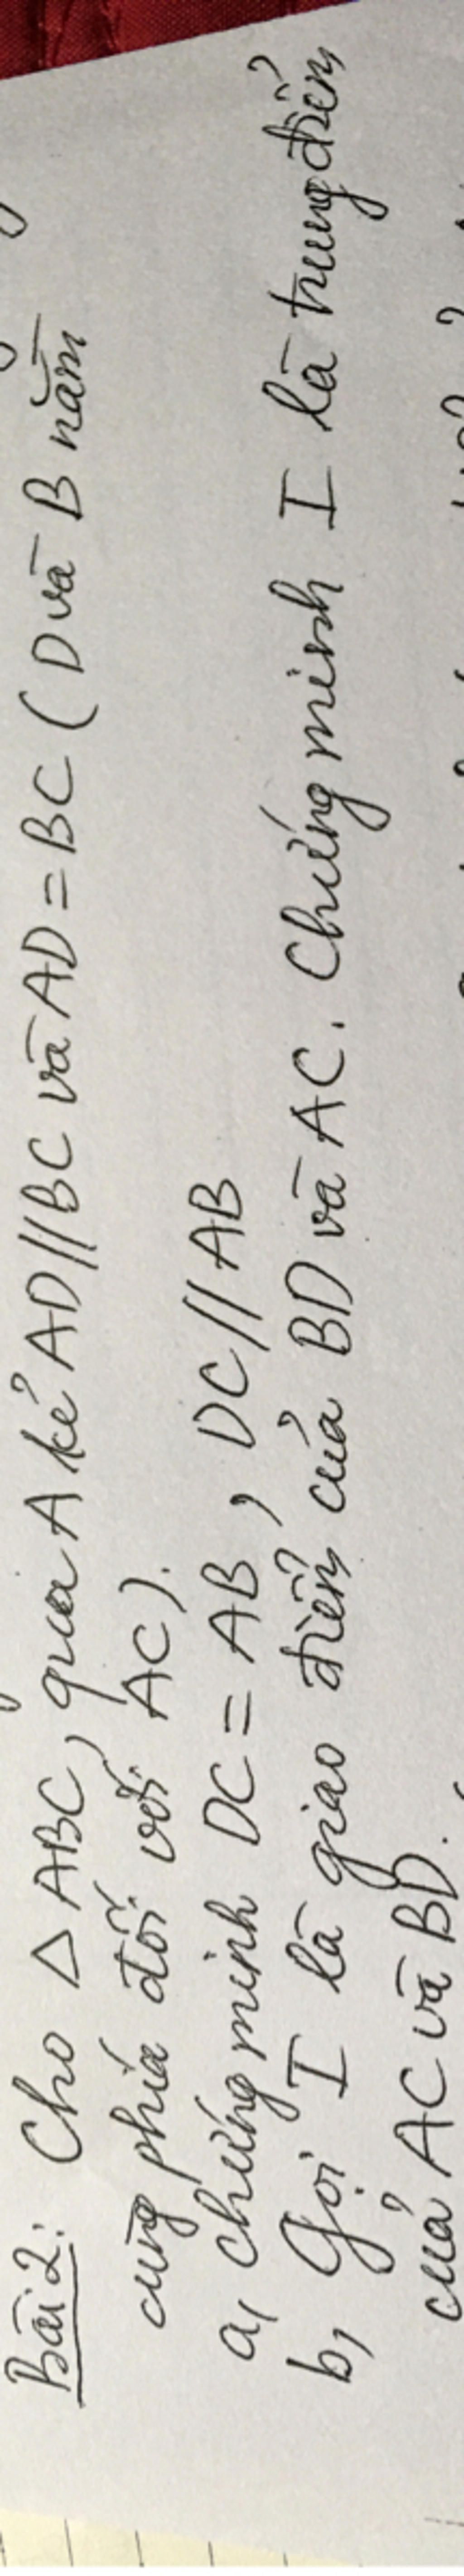 Bài 2: Cho △ABC, qua A kẻ AD//BC và AD=BC (D và B nằm
cùng phía đối với AC).
a, Chứng minh DC=AB, DC//AB
b, Gọi I là giao điểm của BD và AC. Chứng minh I là trung điểm
của AC và BD.